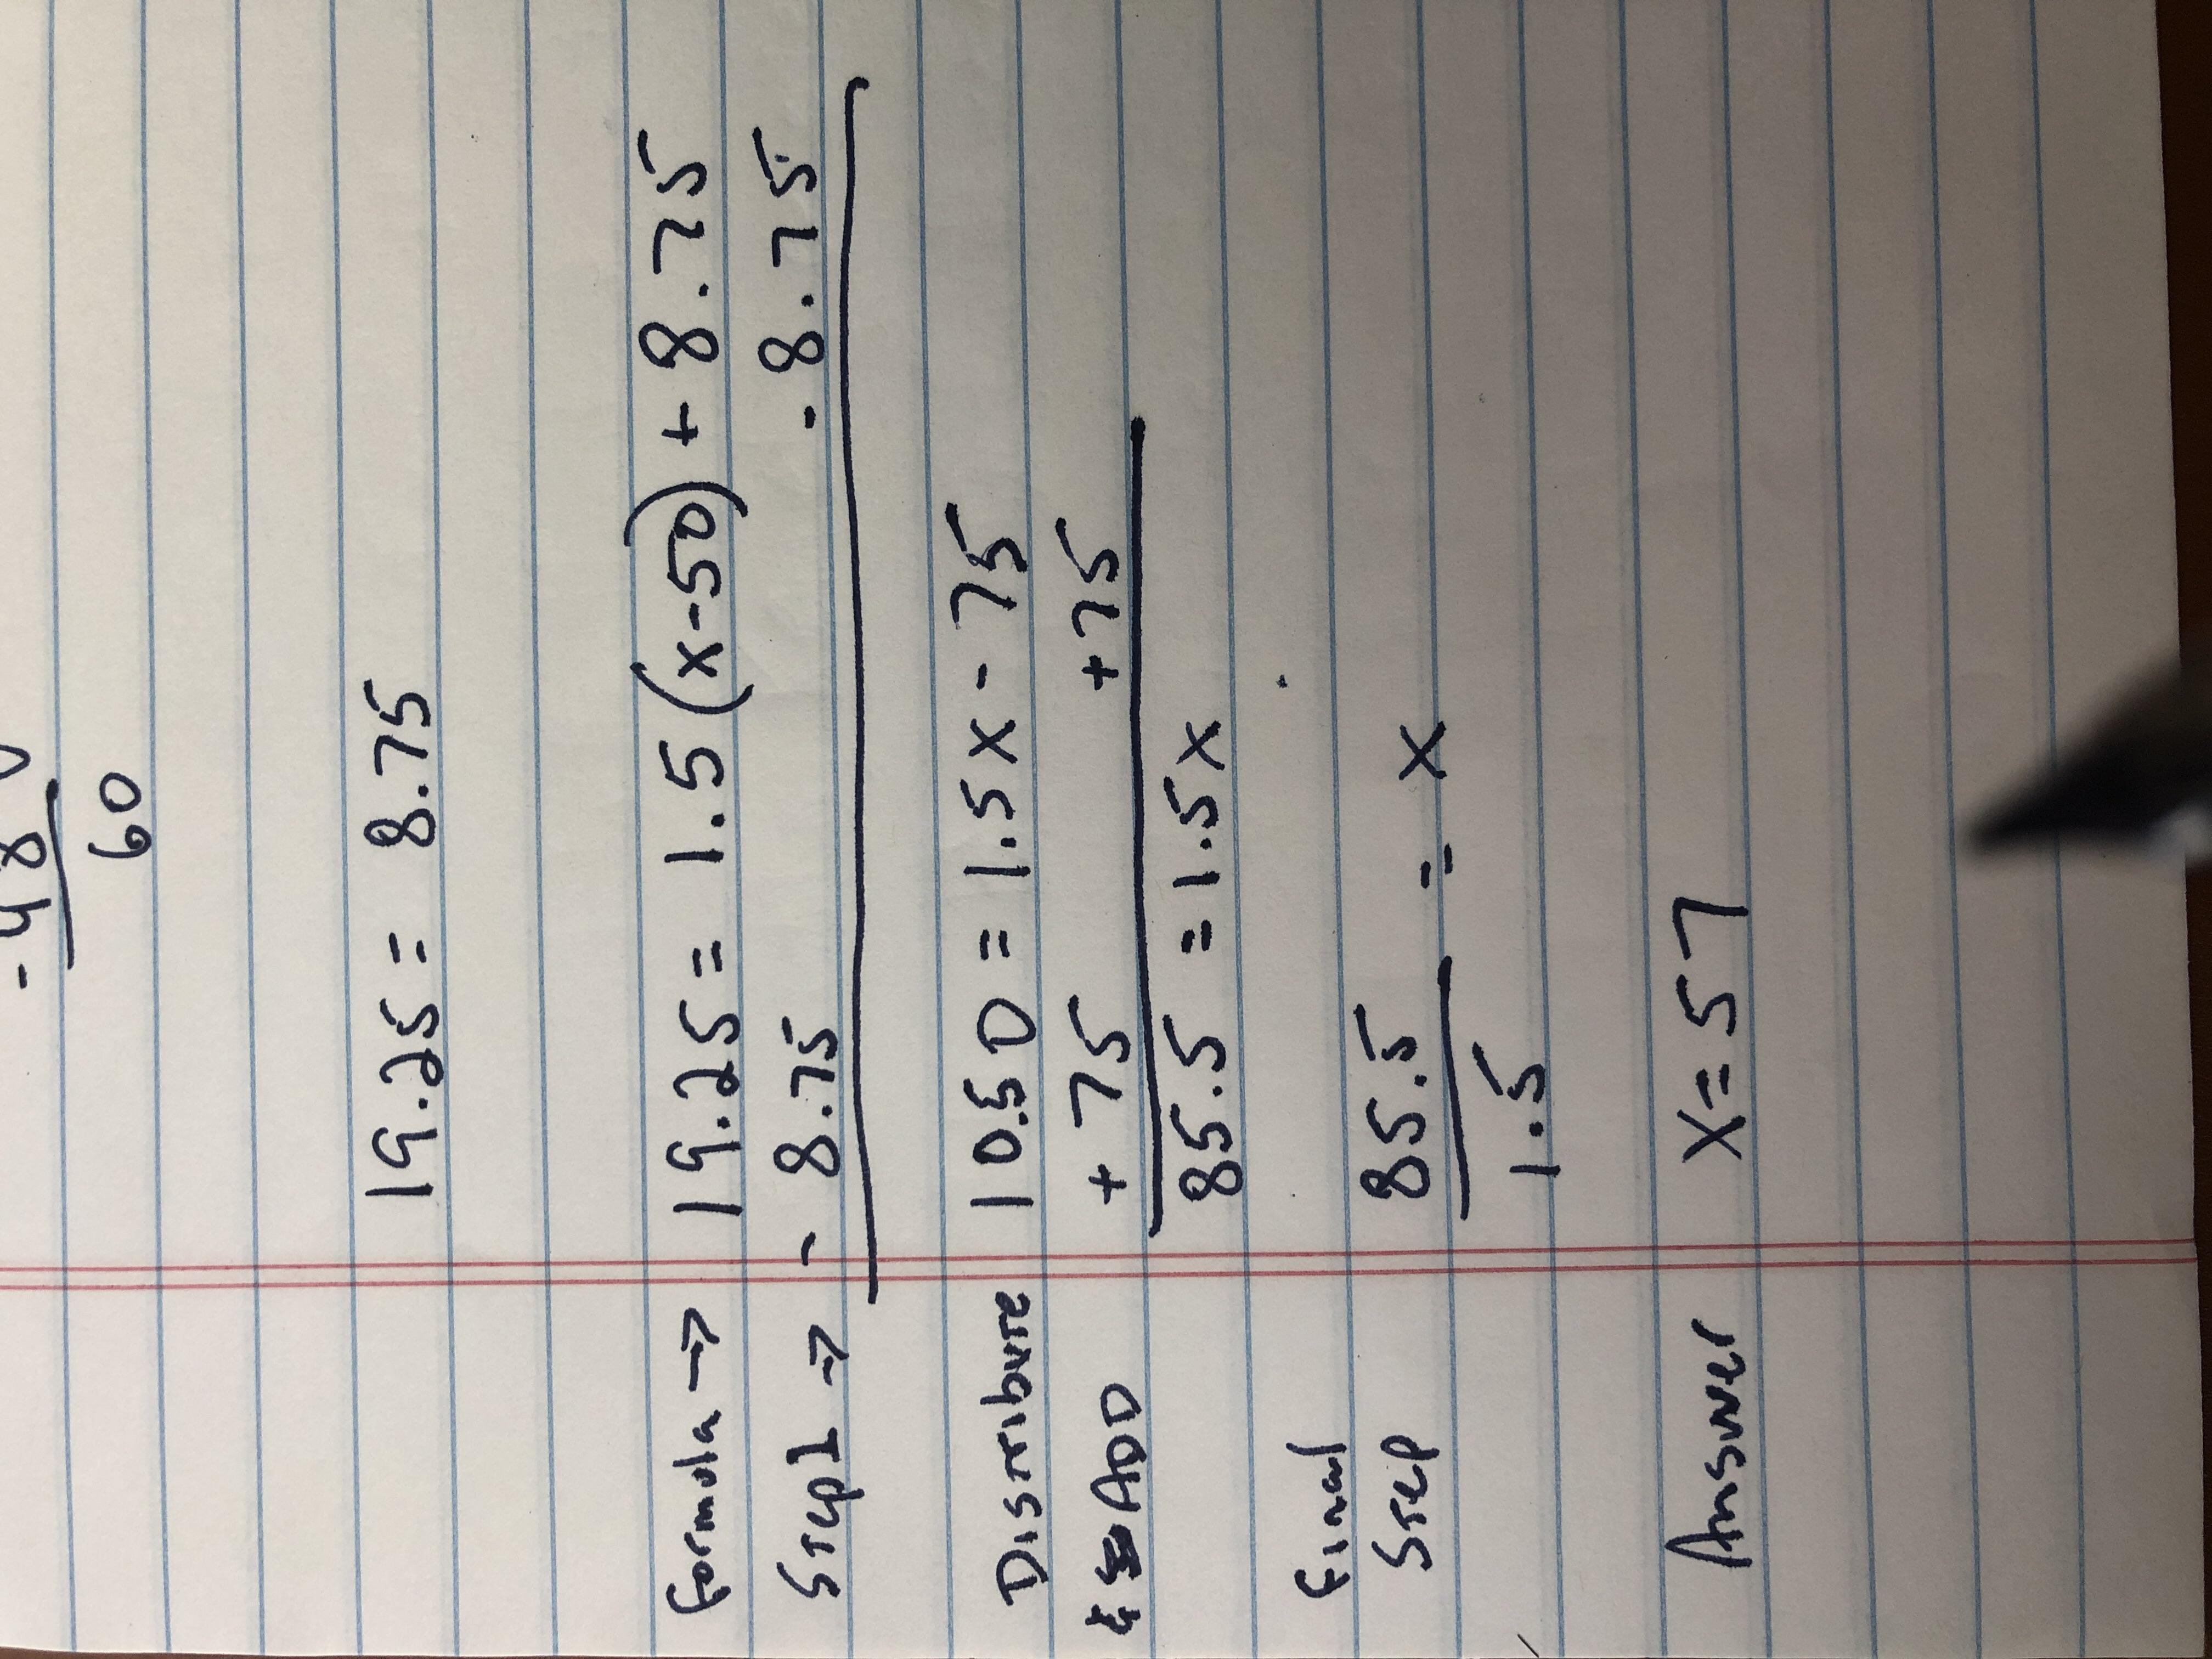 -48
60
19.25 = 8.75
formula → 19.25 = 1.5 (x-50) + 8.75
Step 1 → - 8.75 - 8.75
Distribute 10.50 = 1.5x - 75
& ADD + 75 + 75
85.5 = 1.5x
Final Step 85.5 / 1.5 = x
Answer x = 57